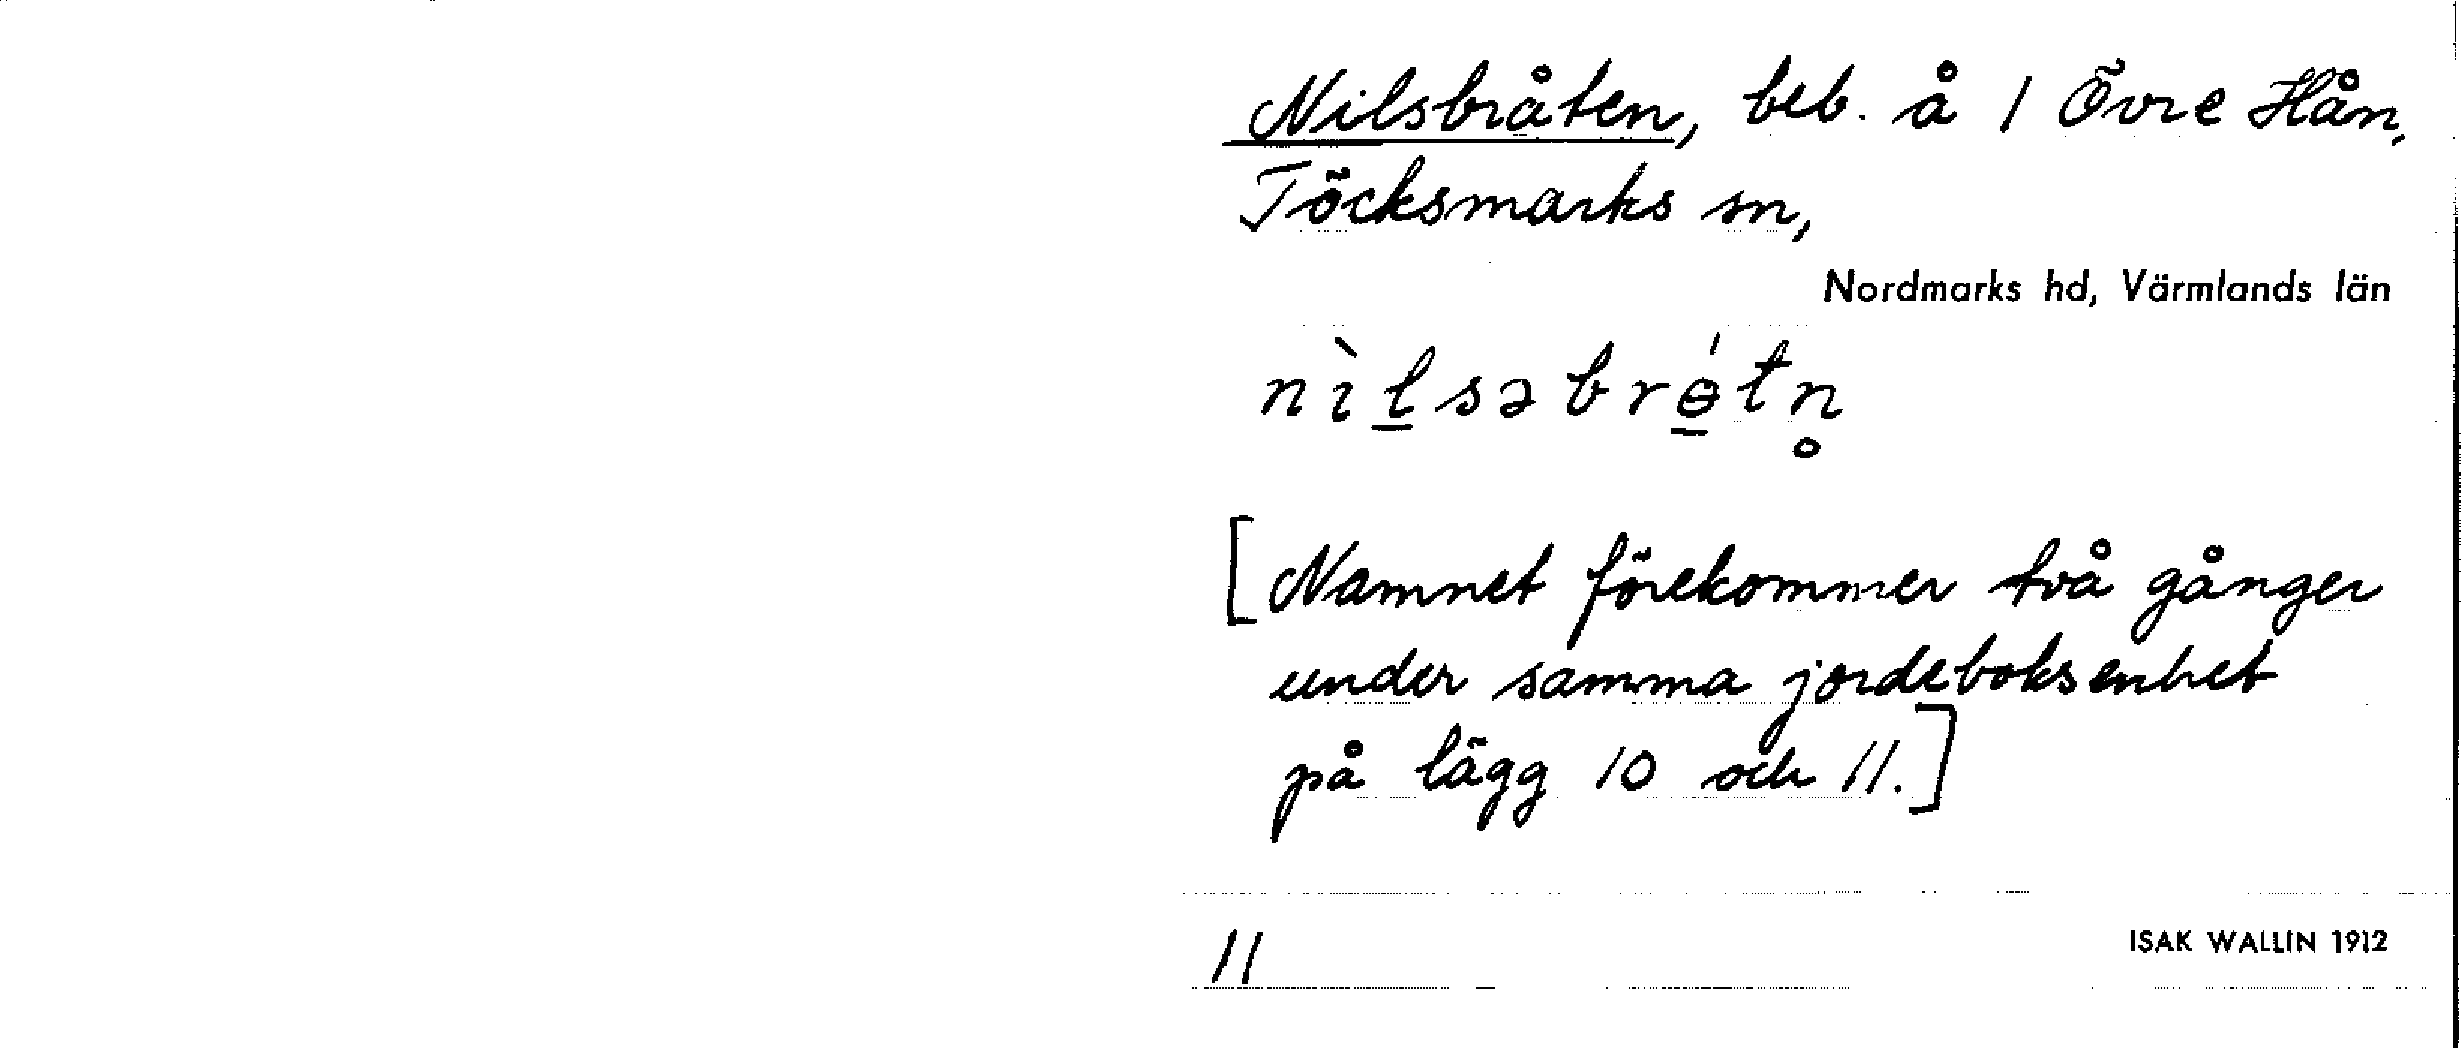 Nilsbråten, beb. å 1 Övre Hån,
Töcksmarks sn,
Nordmarks hd, Värmlands län
nìl̲səbrɵ̲́tn̥
[Namnet förekommer två gånger
under samma jordeboksenhet
på lägg 10 och 11.]
11
ISAK WALLIN 1912